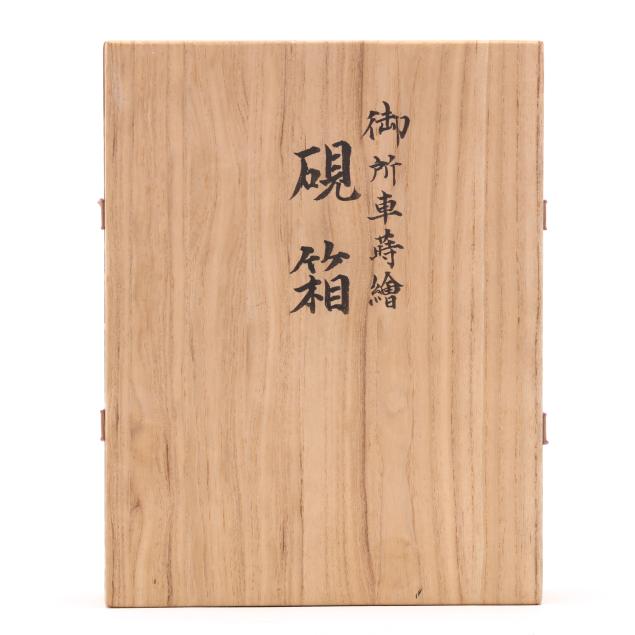 御所車蒔繪
硯箱